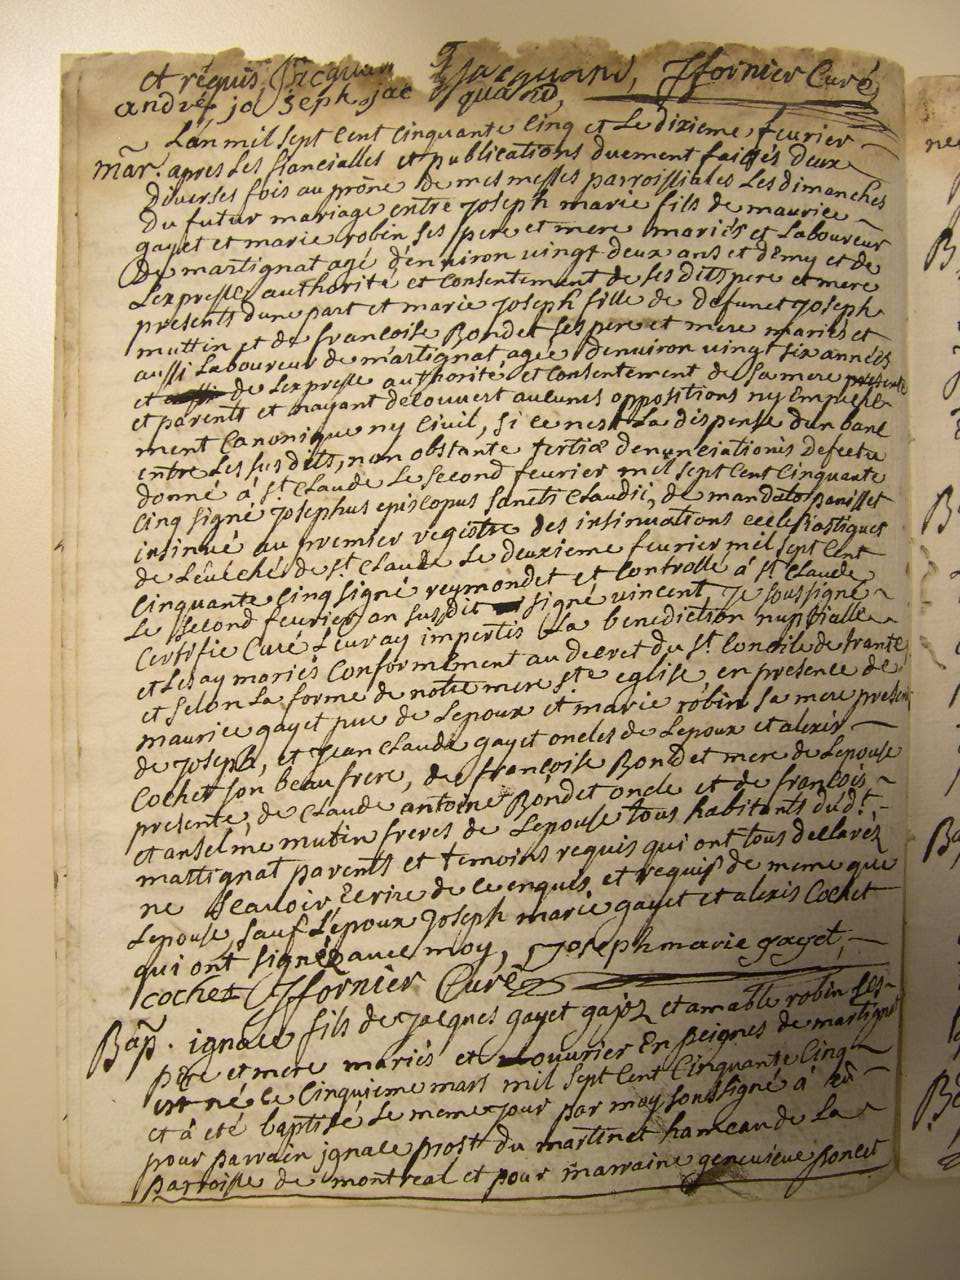 et requis, Jacquand Jacquand, JJfornier Curé,
andré joseph jacquand,
Lan mil sept Cent Cinquante Cinq et Le dixieme feurier
mãr. apres Les fiancialles et publications duement faittes deux
diuerses fois au prône de mes messes parroissiales Les dimanches
du futur mariage entre joseph marie fils de maurice
gayet et marie robin ses pere et mere mariés et Laboureur
de martignat agé denuiron vingt deux ans et demy et de
Lexpresse authorité et consentement de ses dits pere et mere
presents dune part et marie joseph fille de defunct joseph
muttin et de francoise Bondet ses pere et mere mariés et
aussi Laboureur de martignat, agée denuiron vingt six années
et de Lexpresse authorité et consentement de sa mere presente
et parents et nayant decouuert aucunes oppositions ny Empeche-
ment Canonique ny Ciuil, si ce nest La dispense dun banc
entre Les susdits, non obstante tertiæ denunciationis defectu
donné à St. Claude Le second feurier mil sept Cent Cinquante
Cinq signé josephus episcopus sancti Claudii, de mandato panisset
insinué au premier registre des insinuations ecclesiastiques
de Léuéché de St. Claude Le deuxieme feurier mil sept Cent
Cinquante Cinq signé reymondet et Controllé à St. Claude
Le second feurier an susdit signé vincent, Je soussigné
Certifie Curé Leur ay impertis La benediction nuptialle
et Les ay mariés Conformément au decret du St. Concile de trante
et selon La forme de notre mere ste. eglise, en presence de
maurice gayet pere de Lepoux et marie robin sa mere present
de joseph, et jean Claude gayet oncles de Lepoux et alexis
Cochet son beau frere, de françoise Bondet mere de Lepouse
presente, de Claude antoine Bondet oncle et de francois
et anselme mutin freres de Lepouse tous habitants dud.t
martignat parents et temoins requis qui ont tous declarés
ne scauoir Ecrire de ce enquis et requis de meme que
Lepouse, sauf Lepoux joseph marie gayet et alexis Cochet
qui ont signé auec moy, joseph marie gayet,
cochet JJfornier Curé
Bap̃. ignace fils de jacques gayet et amable robin ses
pere et mere mariés et ouurier En peignes de martignat
est né le Cinquieme mars mil sept Cent Cinquante Cinq
et à été baptisé Le meme jour par moy soussigné à eu
pour parrain ignace prost du martinet hameau de La
parroisse de montreal et pour marraine geneuieue poncet